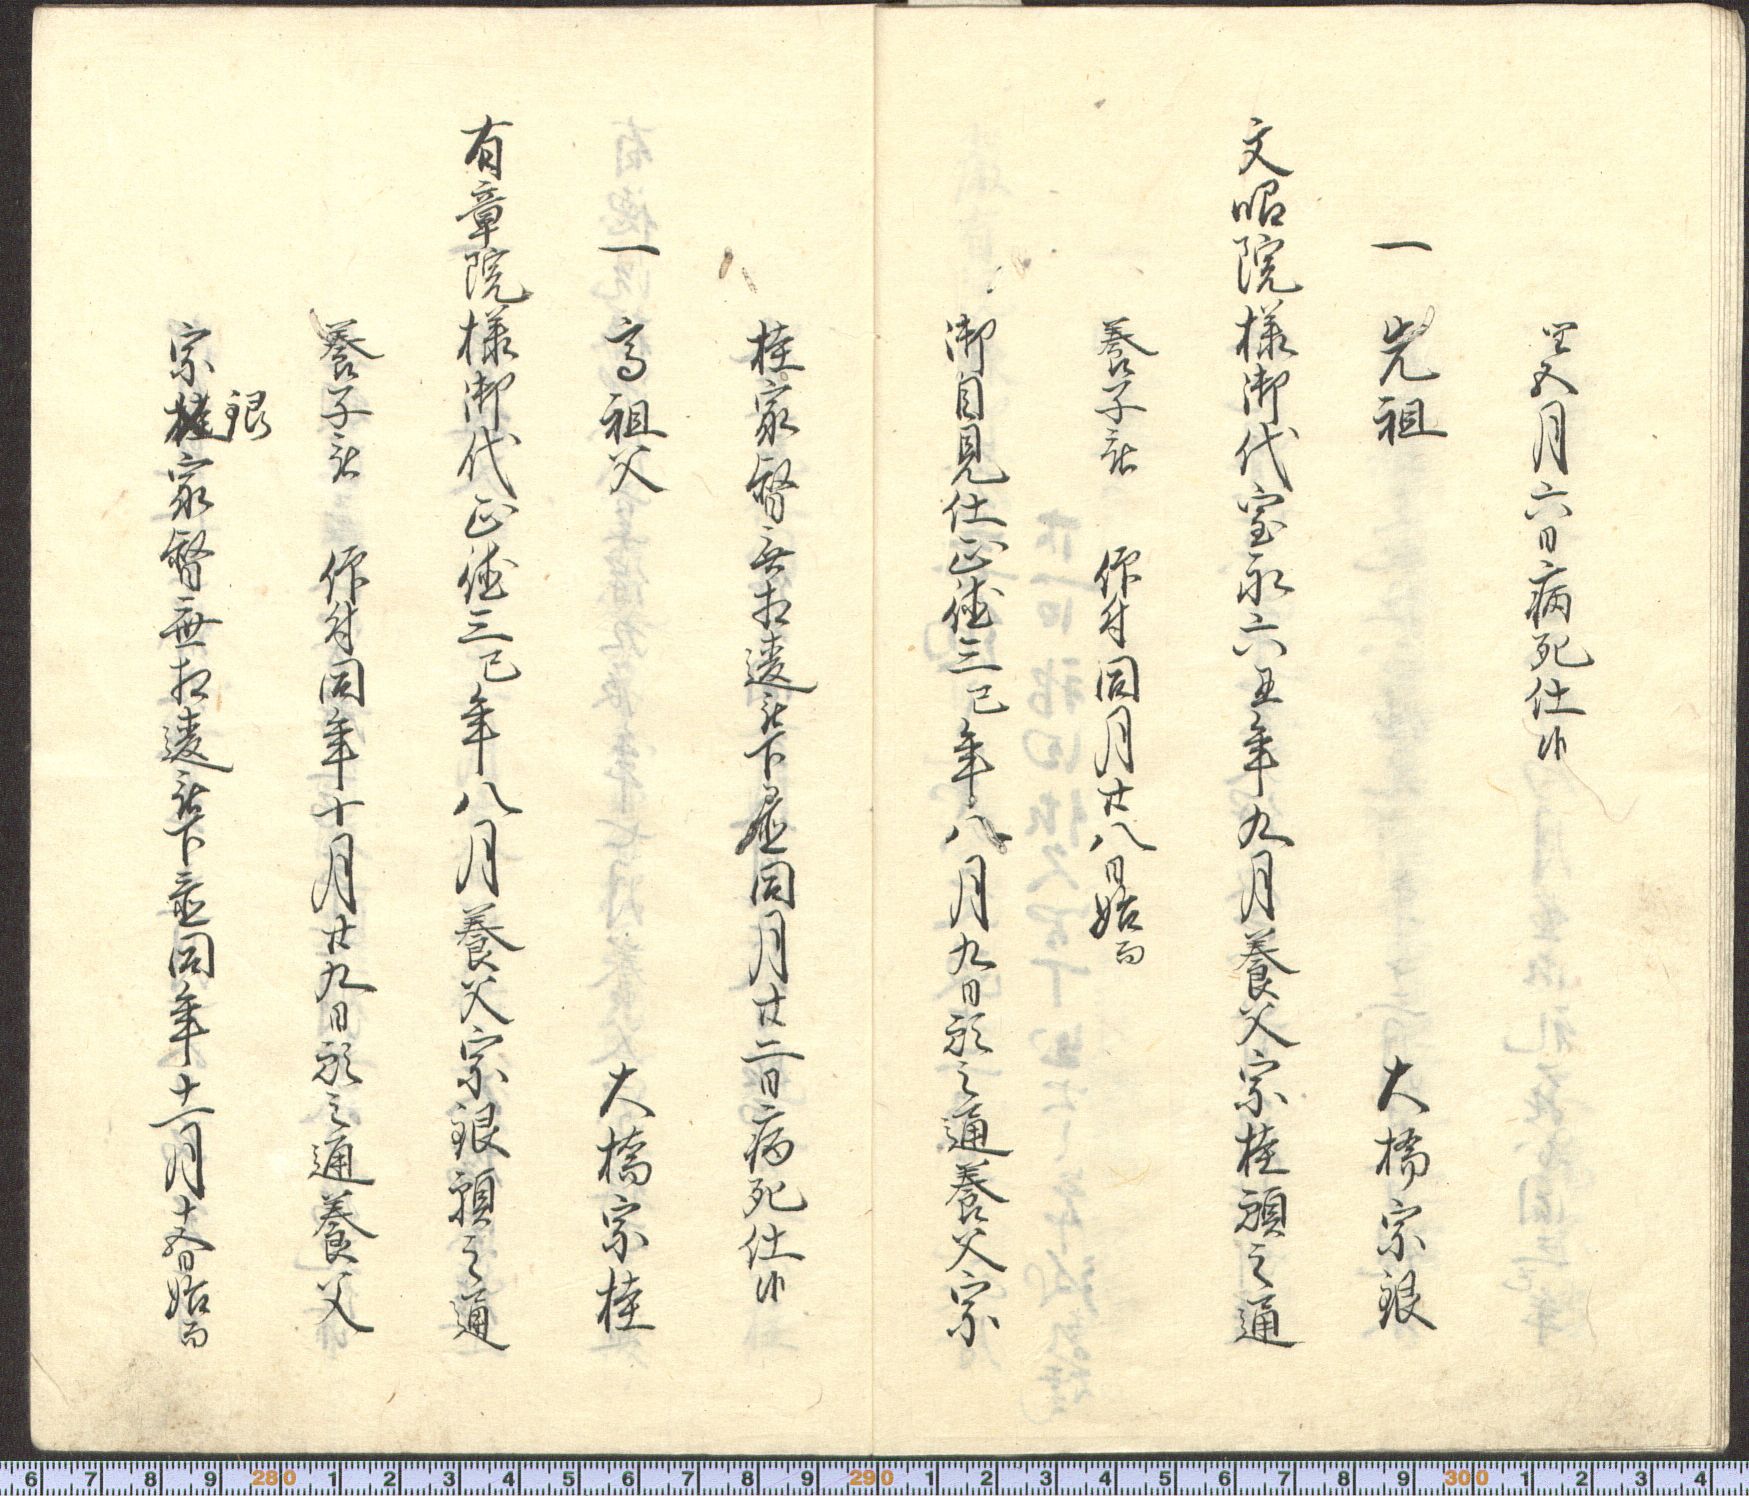 置五月六日病死仕候
一 先祖 大橋宗銀
文昭院様御代宝永六丑年九月養父宗桂願之通
養子被 仰付同月廿八日始而
御目見仕正徳三巳年八月九日願之通養父宗
桂家督無相違被下置同月廿二日病死仕候
一 高祖父 大橋宗桂
有章院様御代正徳三巳年八月養父宗銀願之通
養子被 仰付同年十月廿九日願之通養父
宗桂家督無相違被下置同年十一月十五日始而
銀
6 7 8 9 280 1 2 3 4 5 6 7 8 9 290 1 2 3 4 5 6 7 8 9 300 1 2 3 4